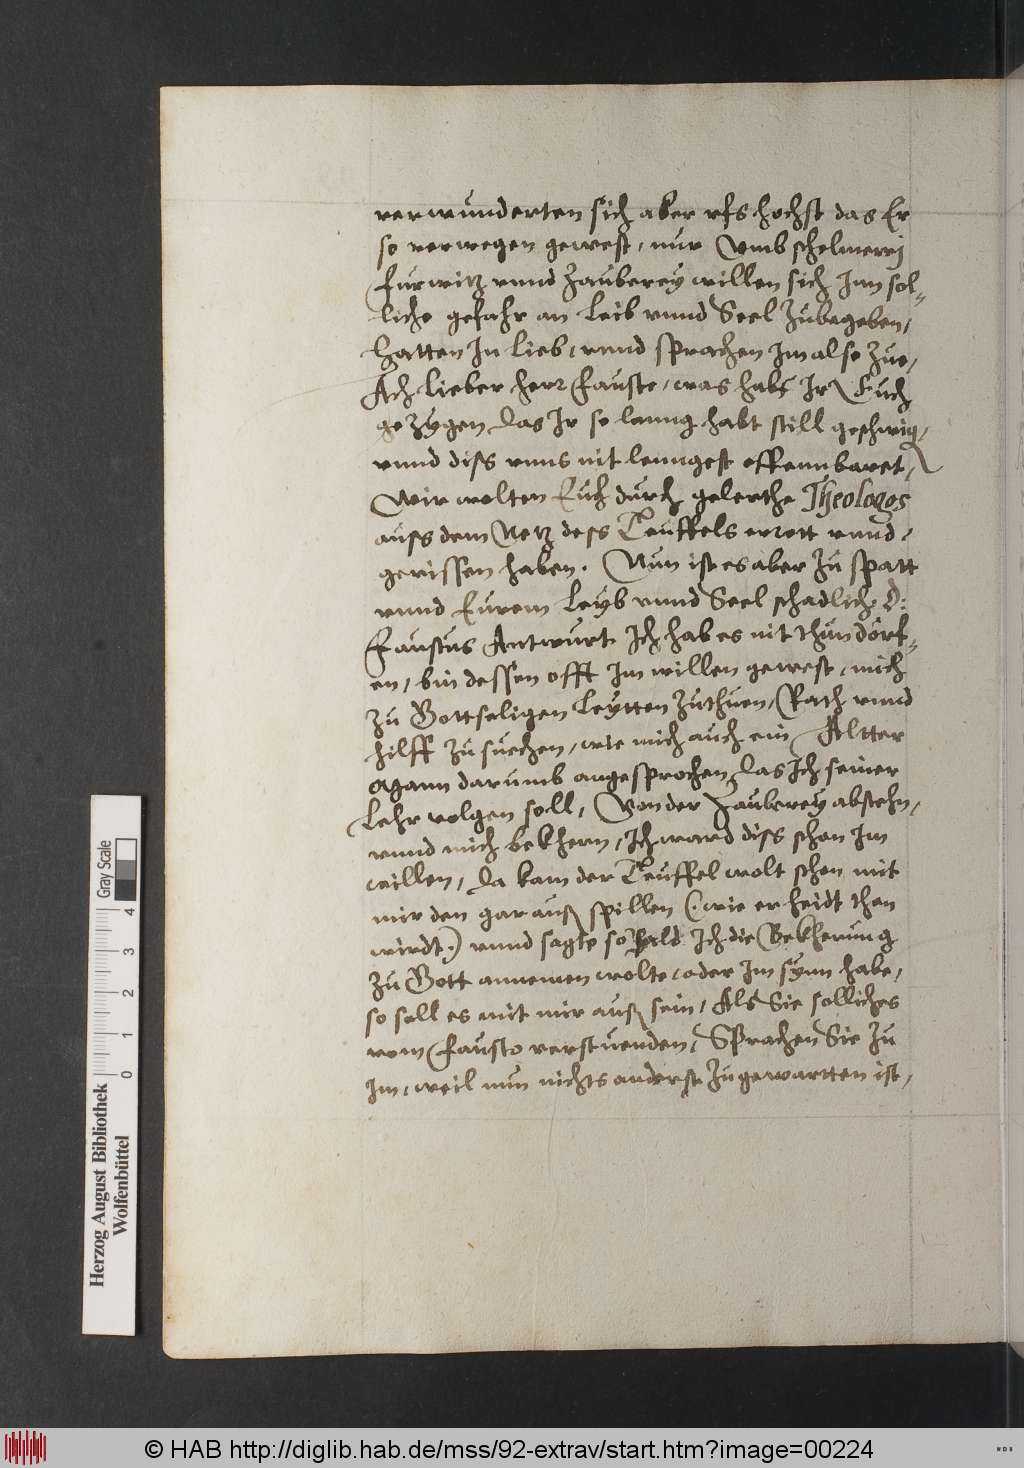 verwunderten sich aber vffs hochst das Er
so verwegen gewest, nur Vmb schelmerej
furwitz vnnd Zauberey willen sich Inn sol„
liche gefahr an Leib vnnd Seel Zubegeben,
Hatten In Lieb, vnnd sprachen Im also Zue,
Ach Lieber herr Fauste, was habt Ir Euch
gezygen das Ir so lanng habt still geschwig,
vnnd diss vnns nit lenngest offennbaret,
Wir wolten Euch durch gelerthe Theologos
auss dem Netz dess Teuffels errett vnnd,
gerissen haben. Nun ist es aber Zu spatt
vnnd Eurem Leyb vnnd Seel schadlich. D:
Faustus Antwurt Ich hab es nit thun dörf„
en, bin dessen offt Im willen gewest, mich
Zu Gottseligen Leytten Zuthuen, Rath vnnd
hilff Zu suechen, wie mich auch ein Altter
Mann darumb angesprochen das Ich seiner
Lehr volgen soll, Von der Zauberey abstehn,
vnnd mich bekhern, Ich ward diss schon Im
willen, da kam der Teuffel wolt schon mit
mir den gar auß spillen (: wie er heidt then
wirdt :) vnnd sagte so bald Ich die Bekherung
Zu Gott annemen wolte, oder Im synn habe,
so soll es mit mir auß sein, Als Sie solliches
vom Fausto verstuenden, Sprachen Sie Zu
Im, weil nun nichts anderst Zugewartten ist,
Gray Scale
4
3
2
1
0
Herzog August Bibliothek
Wolfenbüttel
© HAB http://diglib.hab.de/mss/92-extrav/start.htm?image=00224
WDB